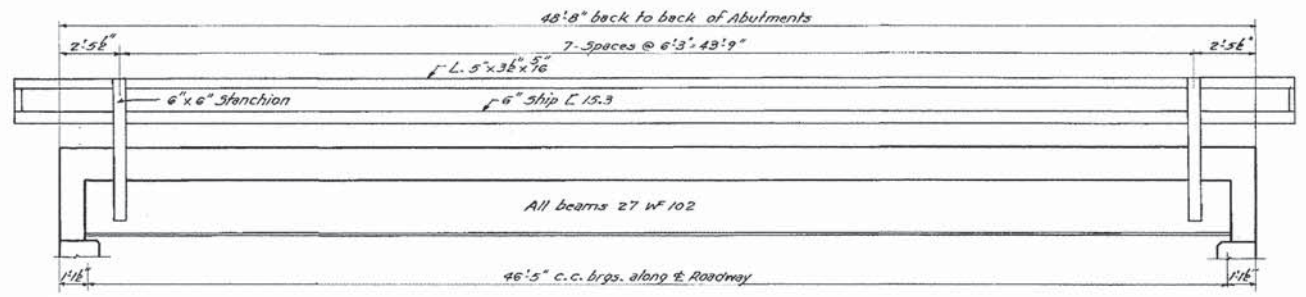 48'-8" back to back of Abutments
2'-5½" 7-Spaces @ 6'-3"=43'-9" 2'-5½"
L. 5"x3½"x5/16
6"x6" Stanchion 6" Ship [ 15.3
All beams 27 WF 102
1'-1½" 46'-5" c.c. brgs. along ℄ Roadway 1'-1½"